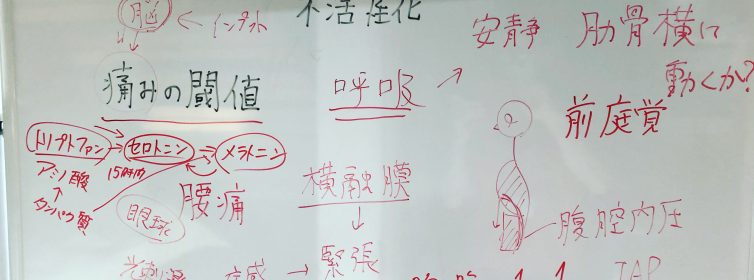 脳 ← インプット
不活性化
安静 肋骨横に
動くか?
痛みの閾値
呼吸
前庭覚
トリプトファン → セロトニン → メラトニン
アミノ酸
15時間
タンパク質
眼球
腰痛
横融膜
↓
緊張
腹腔内圧
IAP